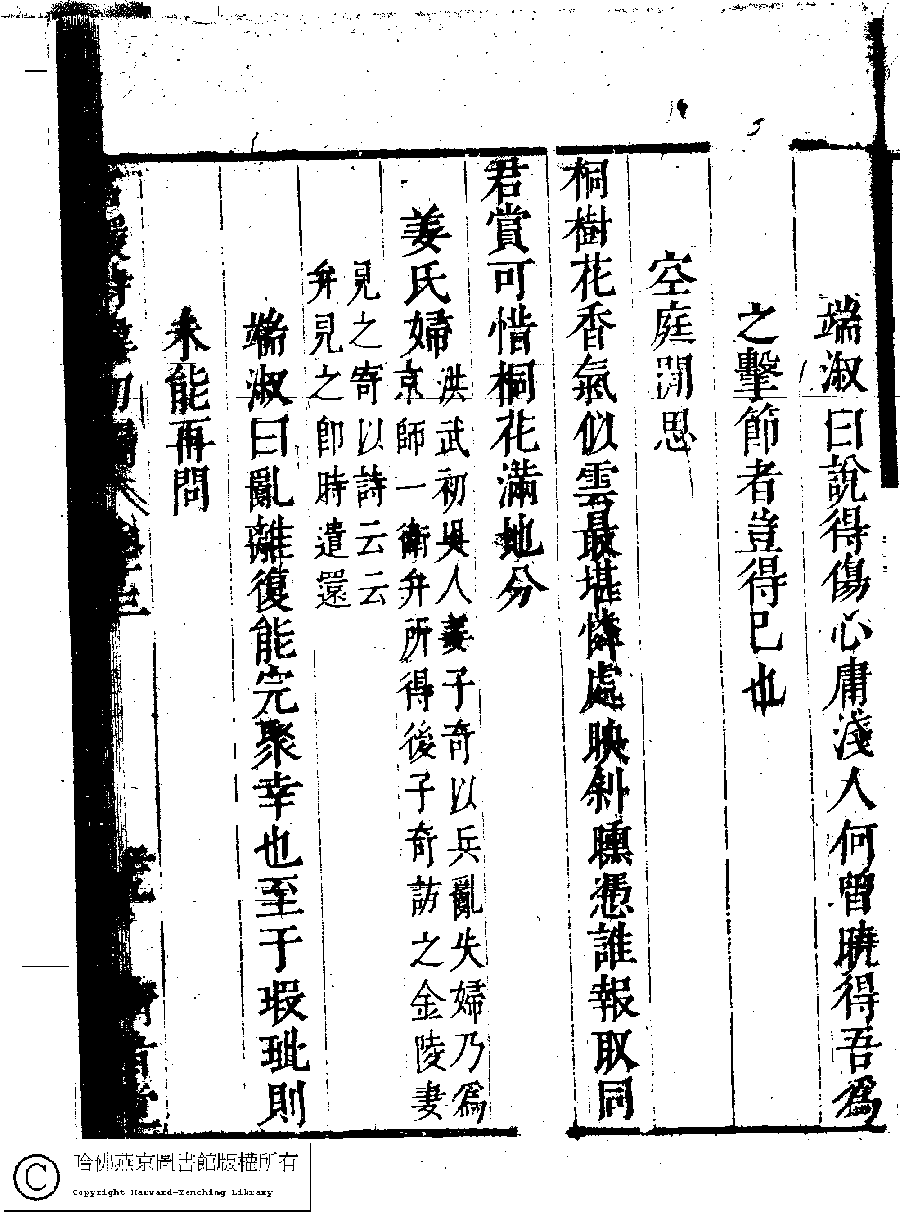 端淑曰說得傷心庸淺人何曾曉得吾爲
之擊節者豈得已也
空庭閒思
桐樹花香氣似雲最堪憐處映斜曛憑誰報取同
君賞可惜桐花滿地分
姜氏婦
洪武初吳人姜子奇以兵亂失婦乃爲
京師一衛弁所得後子奇訪之金陵妻
見之寄以詩云云
弁見之卽時遣還
端淑曰亂離復能完聚幸也至于瑕玼則
未能再問
哈佛燕京圖書館版權所有
Copyright Harvard-Yenching Library